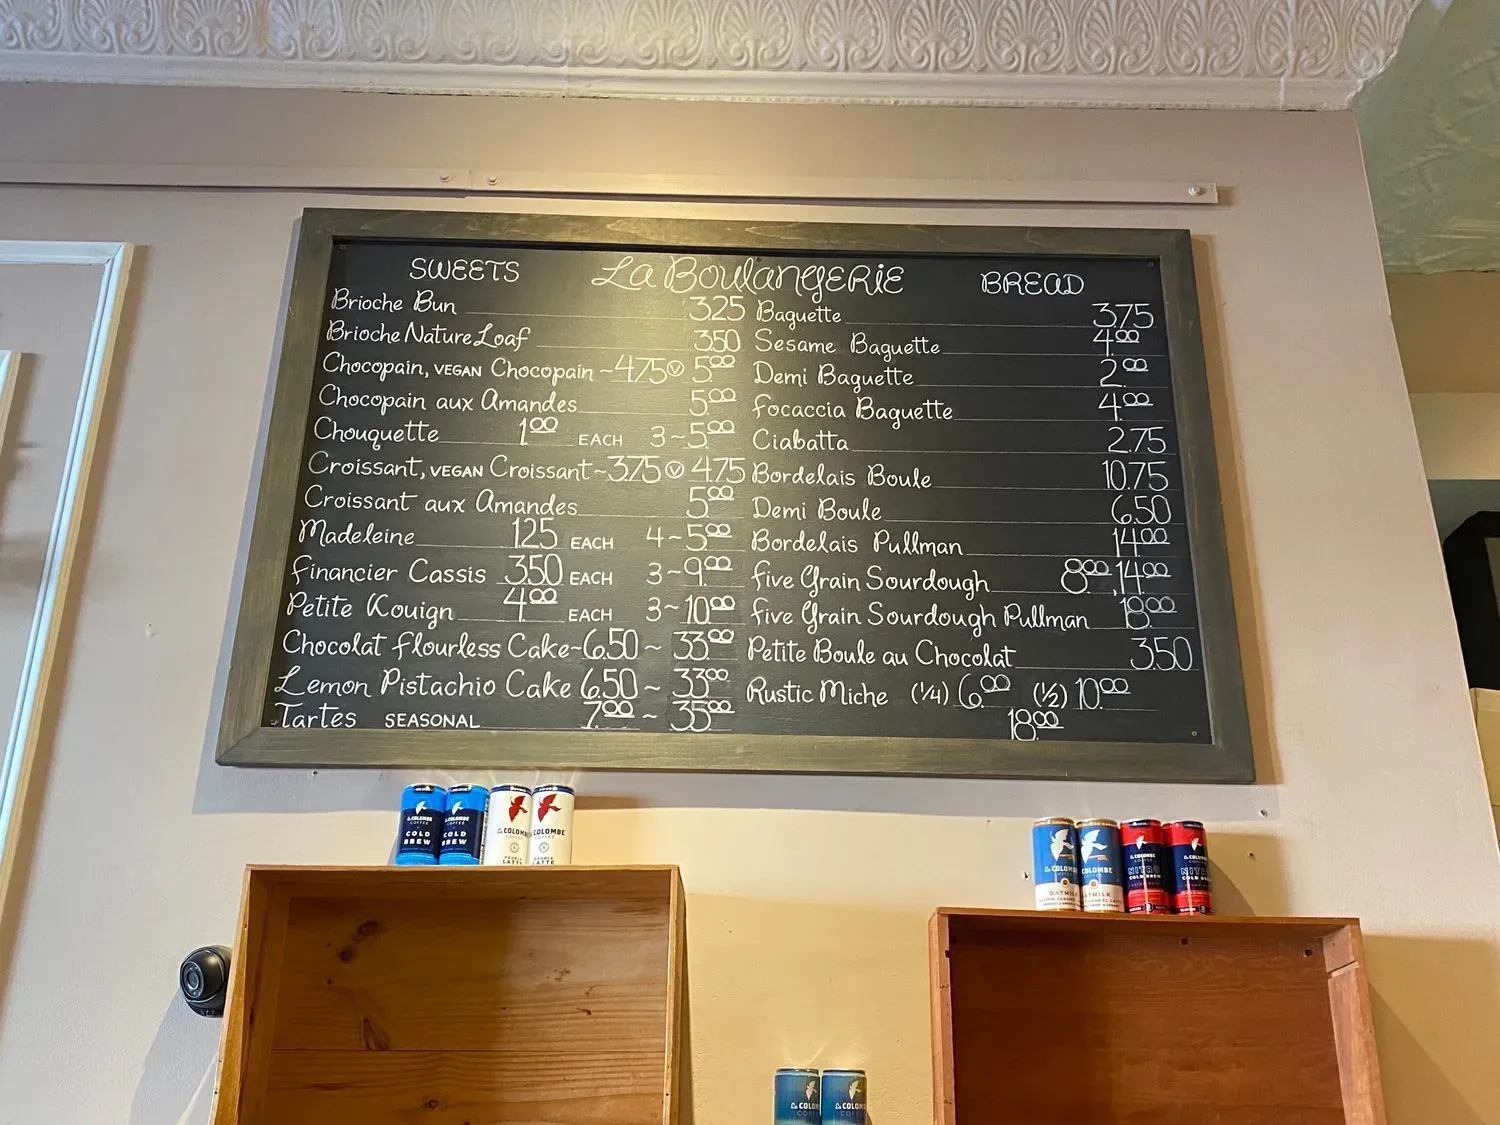 La Boulangerie
SWEETS
Brioche Bun 3.25
Brioche Nature Loaf 3.50
Chocopain, VEGAN Chocopain ~ 4.75 Ⓥ 5.00
Chocopain aux Amandes 5.00
Chouquette 1.00 EACH 3~5.00
Croissant, VEGAN Croissant ~ 3.75 Ⓥ 4.75
Croissant aux Amandes 5.00
Madeleine 1.25 EACH 4~5.00
Financier Cassis 3.50 EACH 3~9.00
Petite Kouign 4.00 EACH 3~10.00
Chocolat Flourless Cake ~ 6.50 ~ 33.00
Lemon Pistachio Cake 6.50 ~ 33.00
Tartes SEASONAL 7.00 ~ 35.00
BREAD
Baguette 3.75
Sesame Baguette 4.00
Demi Baguette 2.00
Focaccia Baguette 4.00
Ciabatta 2.75
Bordelais Boule 10.75
Demi Boule 6.50
Bordelais Pullman 14.00
Five Grain Sourdough 8.00, 14.00
Five Grain Sourdough Pullman 18.00
Petite Boule au Chocolat 3.50
Rustic Miche (1/4) 6.00 (1/2) 10.00
18.00
La COLOMBE
COFFEE
COLD
BREW
La COLOMBE
COFFEE
COLD
BREW
La COLOMBE
DOUBLE
LATTE
COLOMBE
LATTE
La COLOMBE
OATMILK
COLOMBE
La COLOMBE
NITRO
COLD BREW
La COLOMBE
NITRO
COLD
La COLOMBE
La COLOMBE